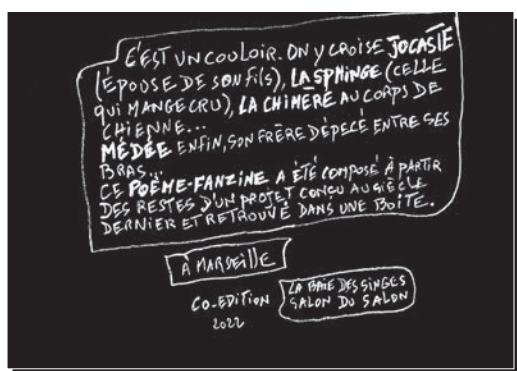 C'EST UN COULOIR. ON Y CROISE JOCASTE
(ÉPOUSE DE SON FILS), LA SPHINGE (CELLE
QUI MANGE CRU), LA CHIMÈRE AU CORPS DE
CHIENNE...
MÉDÉE ENFIN, SON FRÈRE DÉPECÉ ENTRE SES
BRAS...
CE POÈME-FANZINE A ÉTÉ COMPOSÉ À PARTIR
DES RESTES D'UN PROJET CONÇU AU SIÈCLE
DERNIER ET RETROUVÉ DANS UNE BOÎTE.
À MARSEILLE
CO-EDITION
LA BAIE DES SINGES
SALON DU SALON
2022